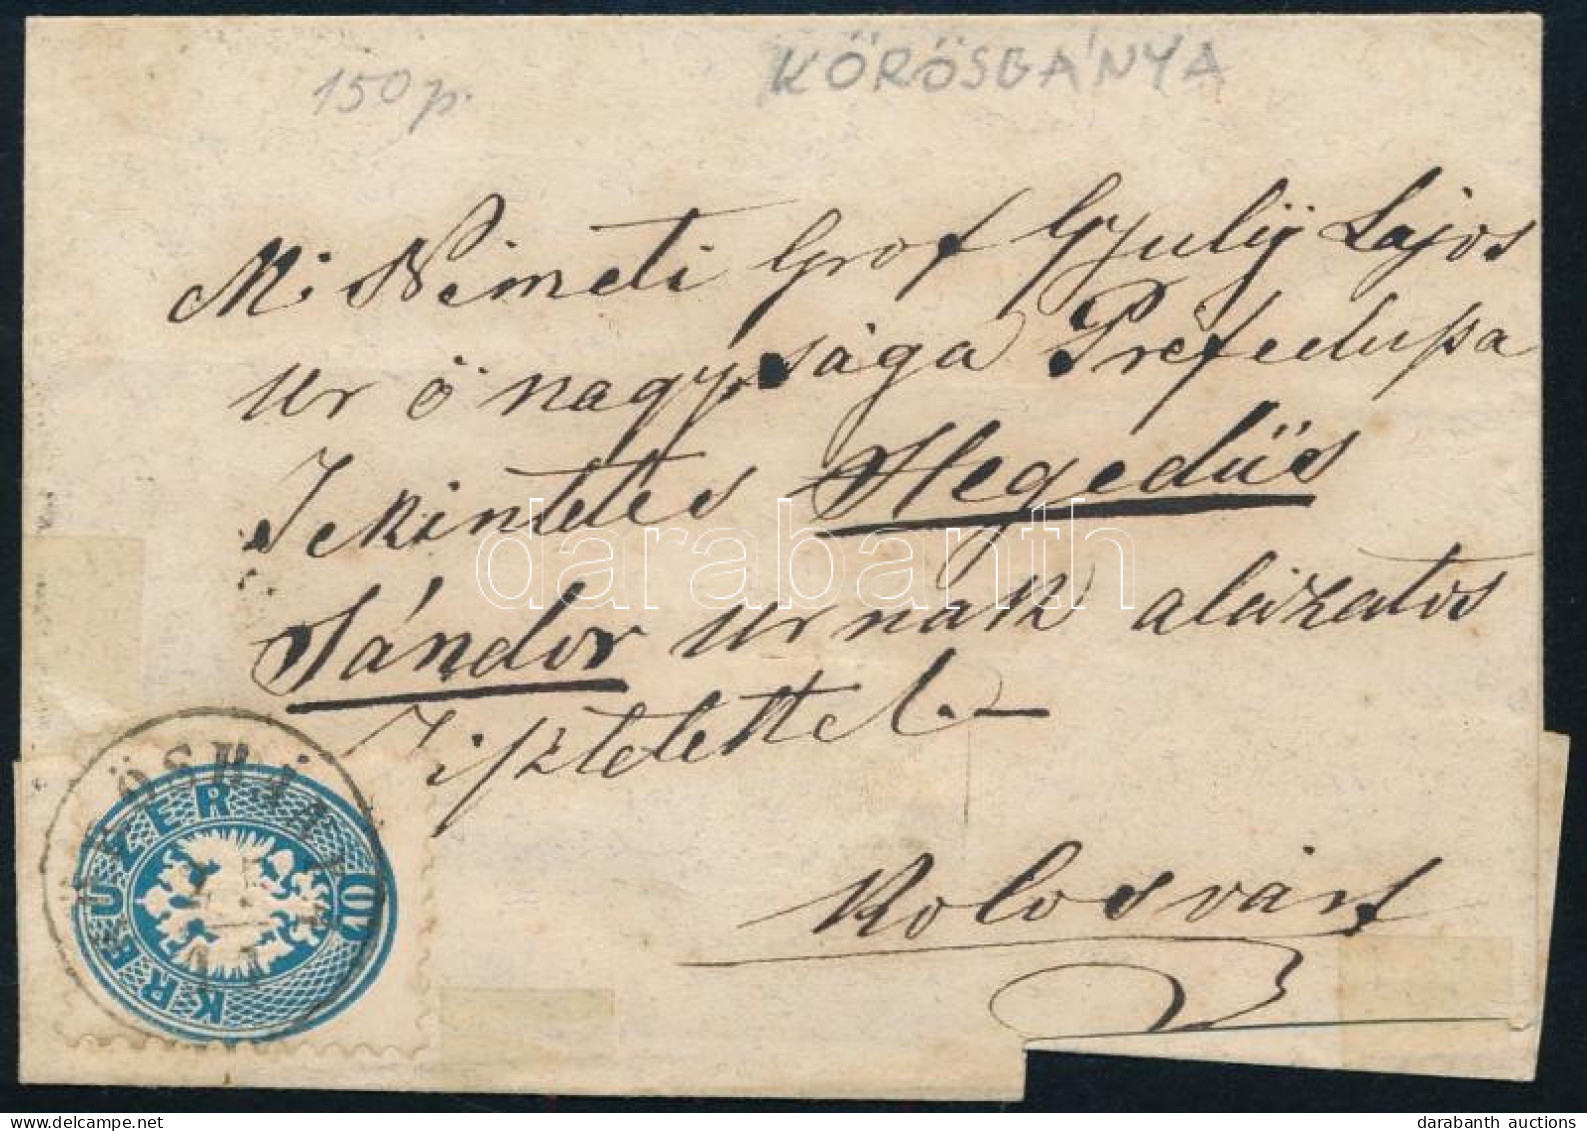 150 p.
KŐRÖSBÁNYA
M. Németi Grof Gyulij Lajos
ur ő nagysága Préfectussa
Tekintetes Hegedüs
Sándor urnak alázatos
Tisztelettel.
Kolosvárt
KÖRÖSBÁNYA
10 KREUZER
darabanth
darabanth auctions